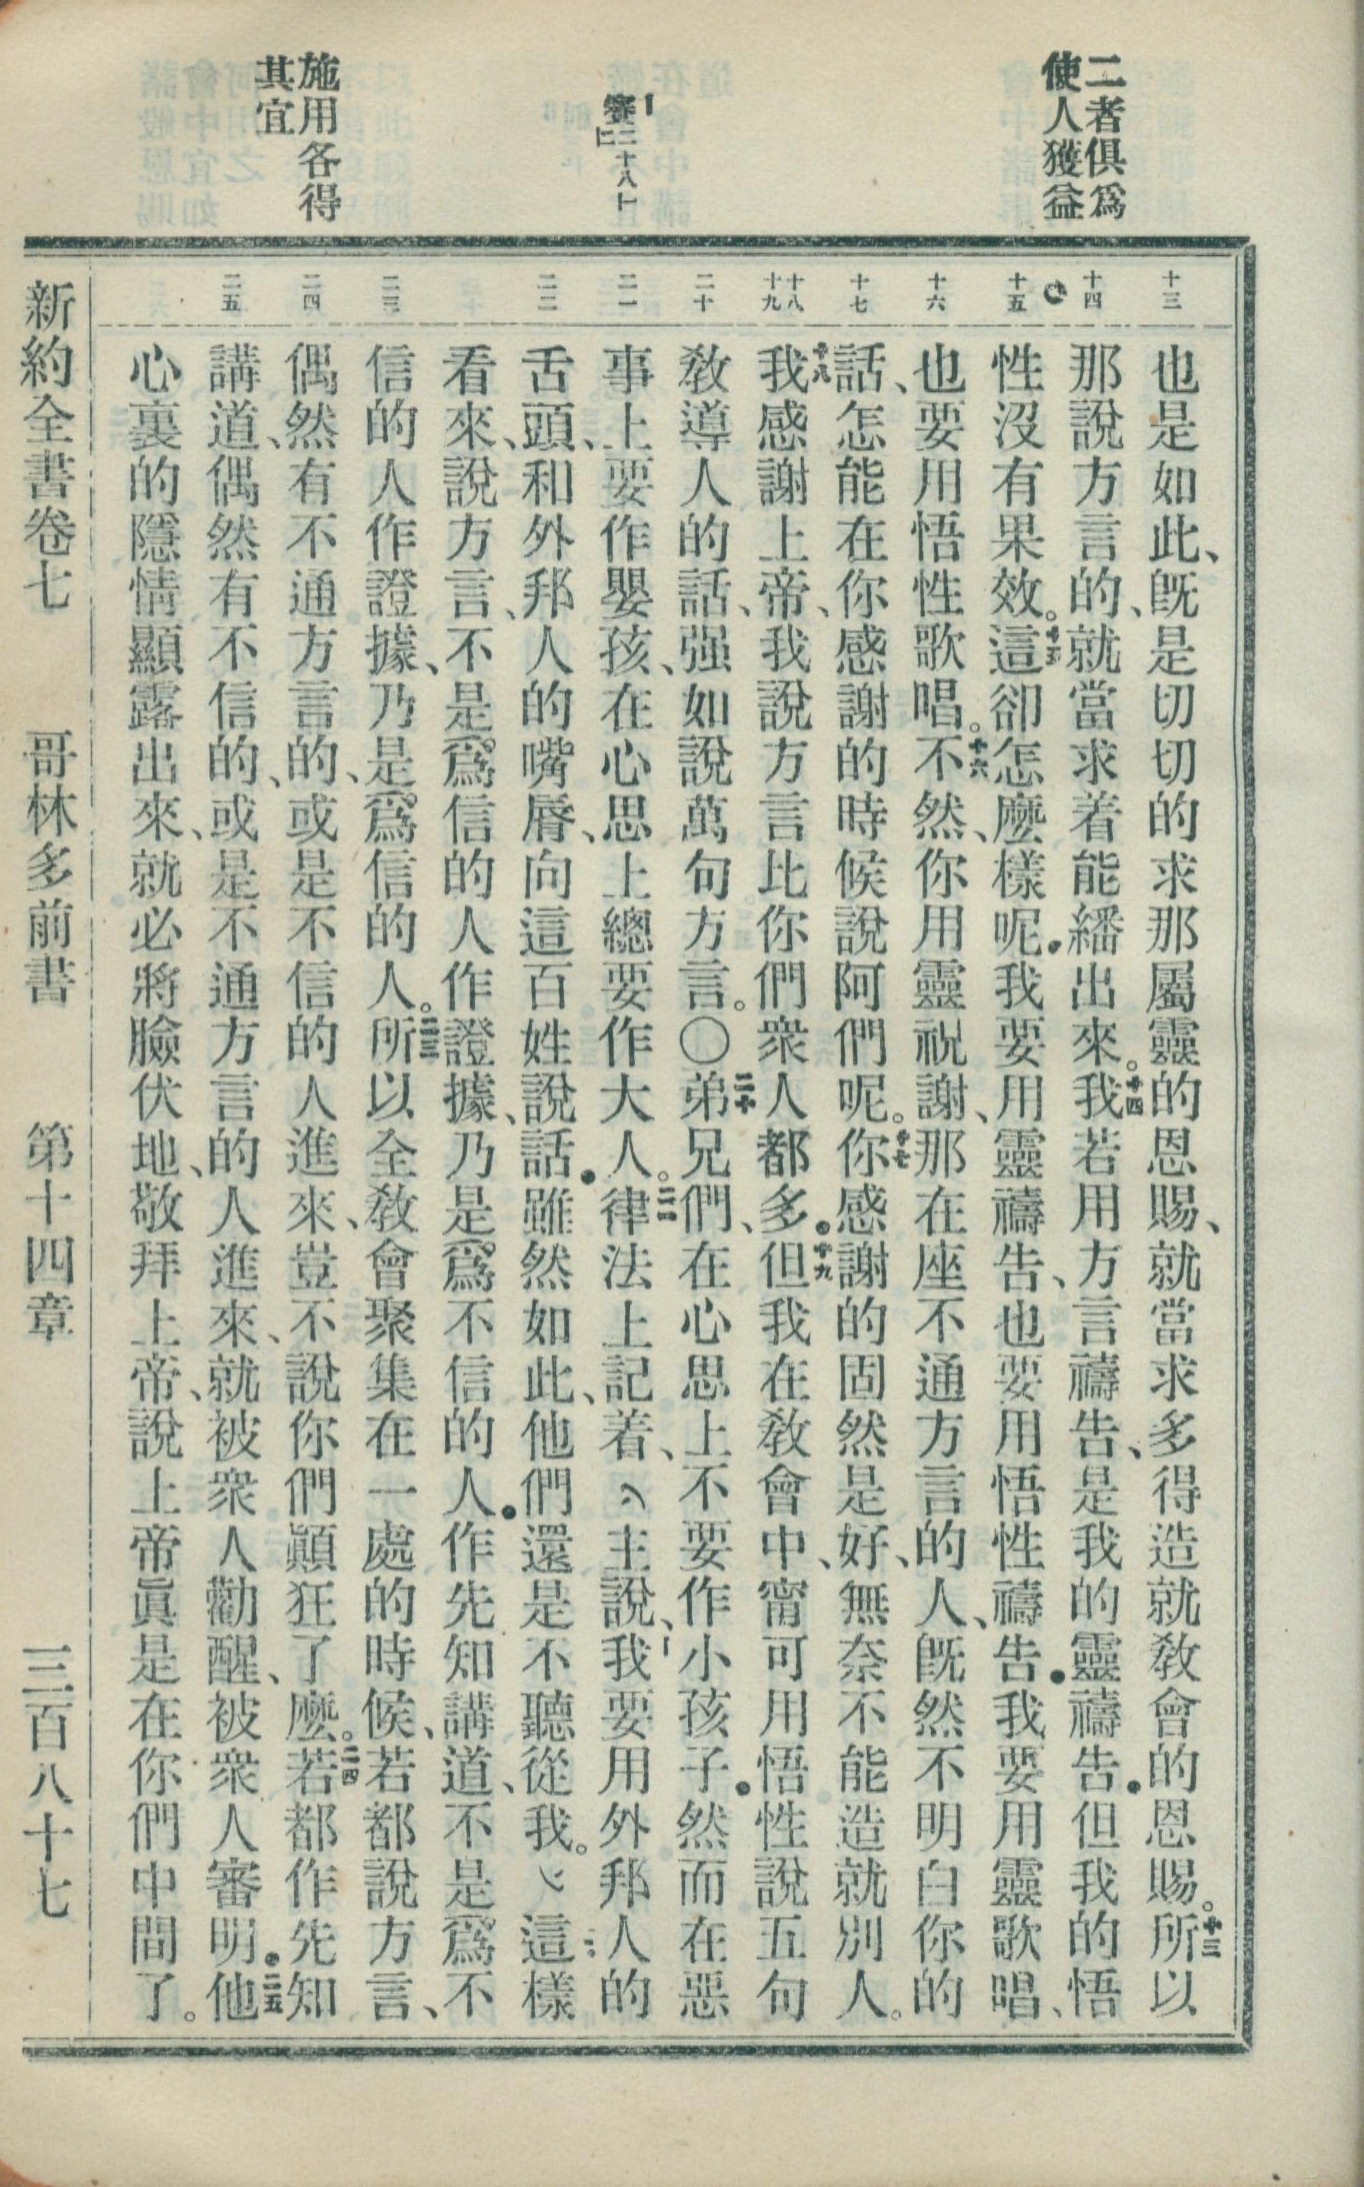 二者俱爲
使人獲益
賽二十八十
一
上
施用各得
其宜
十三
十四
十五
十六
十七
十八
十九
二十
二一
二二
二三
二四
二五
也是如此、旣是切切的求那屬靈的恩賜、就當求多得造就敎會的恩賜。十三所以
那說方言的、就當求着能繙出來。十四我若用方言禱告、是我的靈禱告．但我的悟
性沒有果效。十五這卻怎麼樣呢．我要用靈禱告、也要用悟性禱告．我要用靈歌唱、
也要用悟性歌唱。十六不然、你用靈祝謝、那在座不通方言的人、旣然不明白你的
話、怎能在你感謝的時候說阿們呢。十七你感謝的固然是好、無奈不能造就別人。
十八我感謝上帝、我說方言比你們衆人都多．十九但我在敎會中、甯可用悟性說五句
敎導人的話、强如說萬句方言。〇二十弟兄們、在心思上不要作小孩子．然而在惡
事上要作嬰孩、在心思上總要作大人。二一律法上記着、主說、我要用外邦人的
舌頭、和外邦人的嘴脣、向這百姓說話．雖然如此、他們還是不聽從我。二二這樣
看來、說方言、不是爲信的人作證據、乃是爲不信的人．作先知講道、不是爲不
信的人作證據、乃是爲信的人。二三所以全敎會聚集在一處的時候、若都說方言、
偶然有不通方言的、或是不信的人進來、豈不說你們顚狂了麼。二四若都作先知
講道、偶然有不信的、或是不通方言的人進來、就被衆人勸醒、被衆人審明．二五他
心裏的隱情顯露出來、就必將臉伏地、敬拜上帝、說上帝眞是在你們中間了。
新約全書卷七 哥林多前書 第十四章 三百八十七